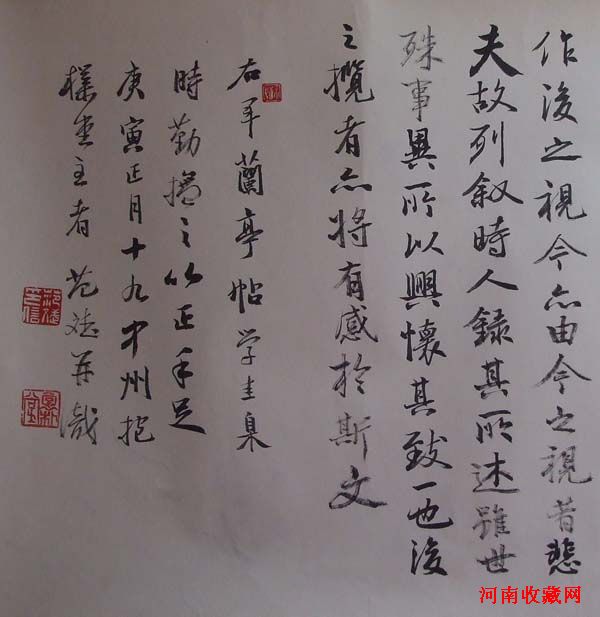 作後之視今亦由今之視昔悲
夫故列叙時人錄其所述雖世
殊事異所以興懷其致一也後
之攬者亦将有感於斯文
右軍蘭亭帖学圭臬
時勤摹之以正手足
庚寅正月十九中州抱
樸堂主者范斌并識
河南收藏网